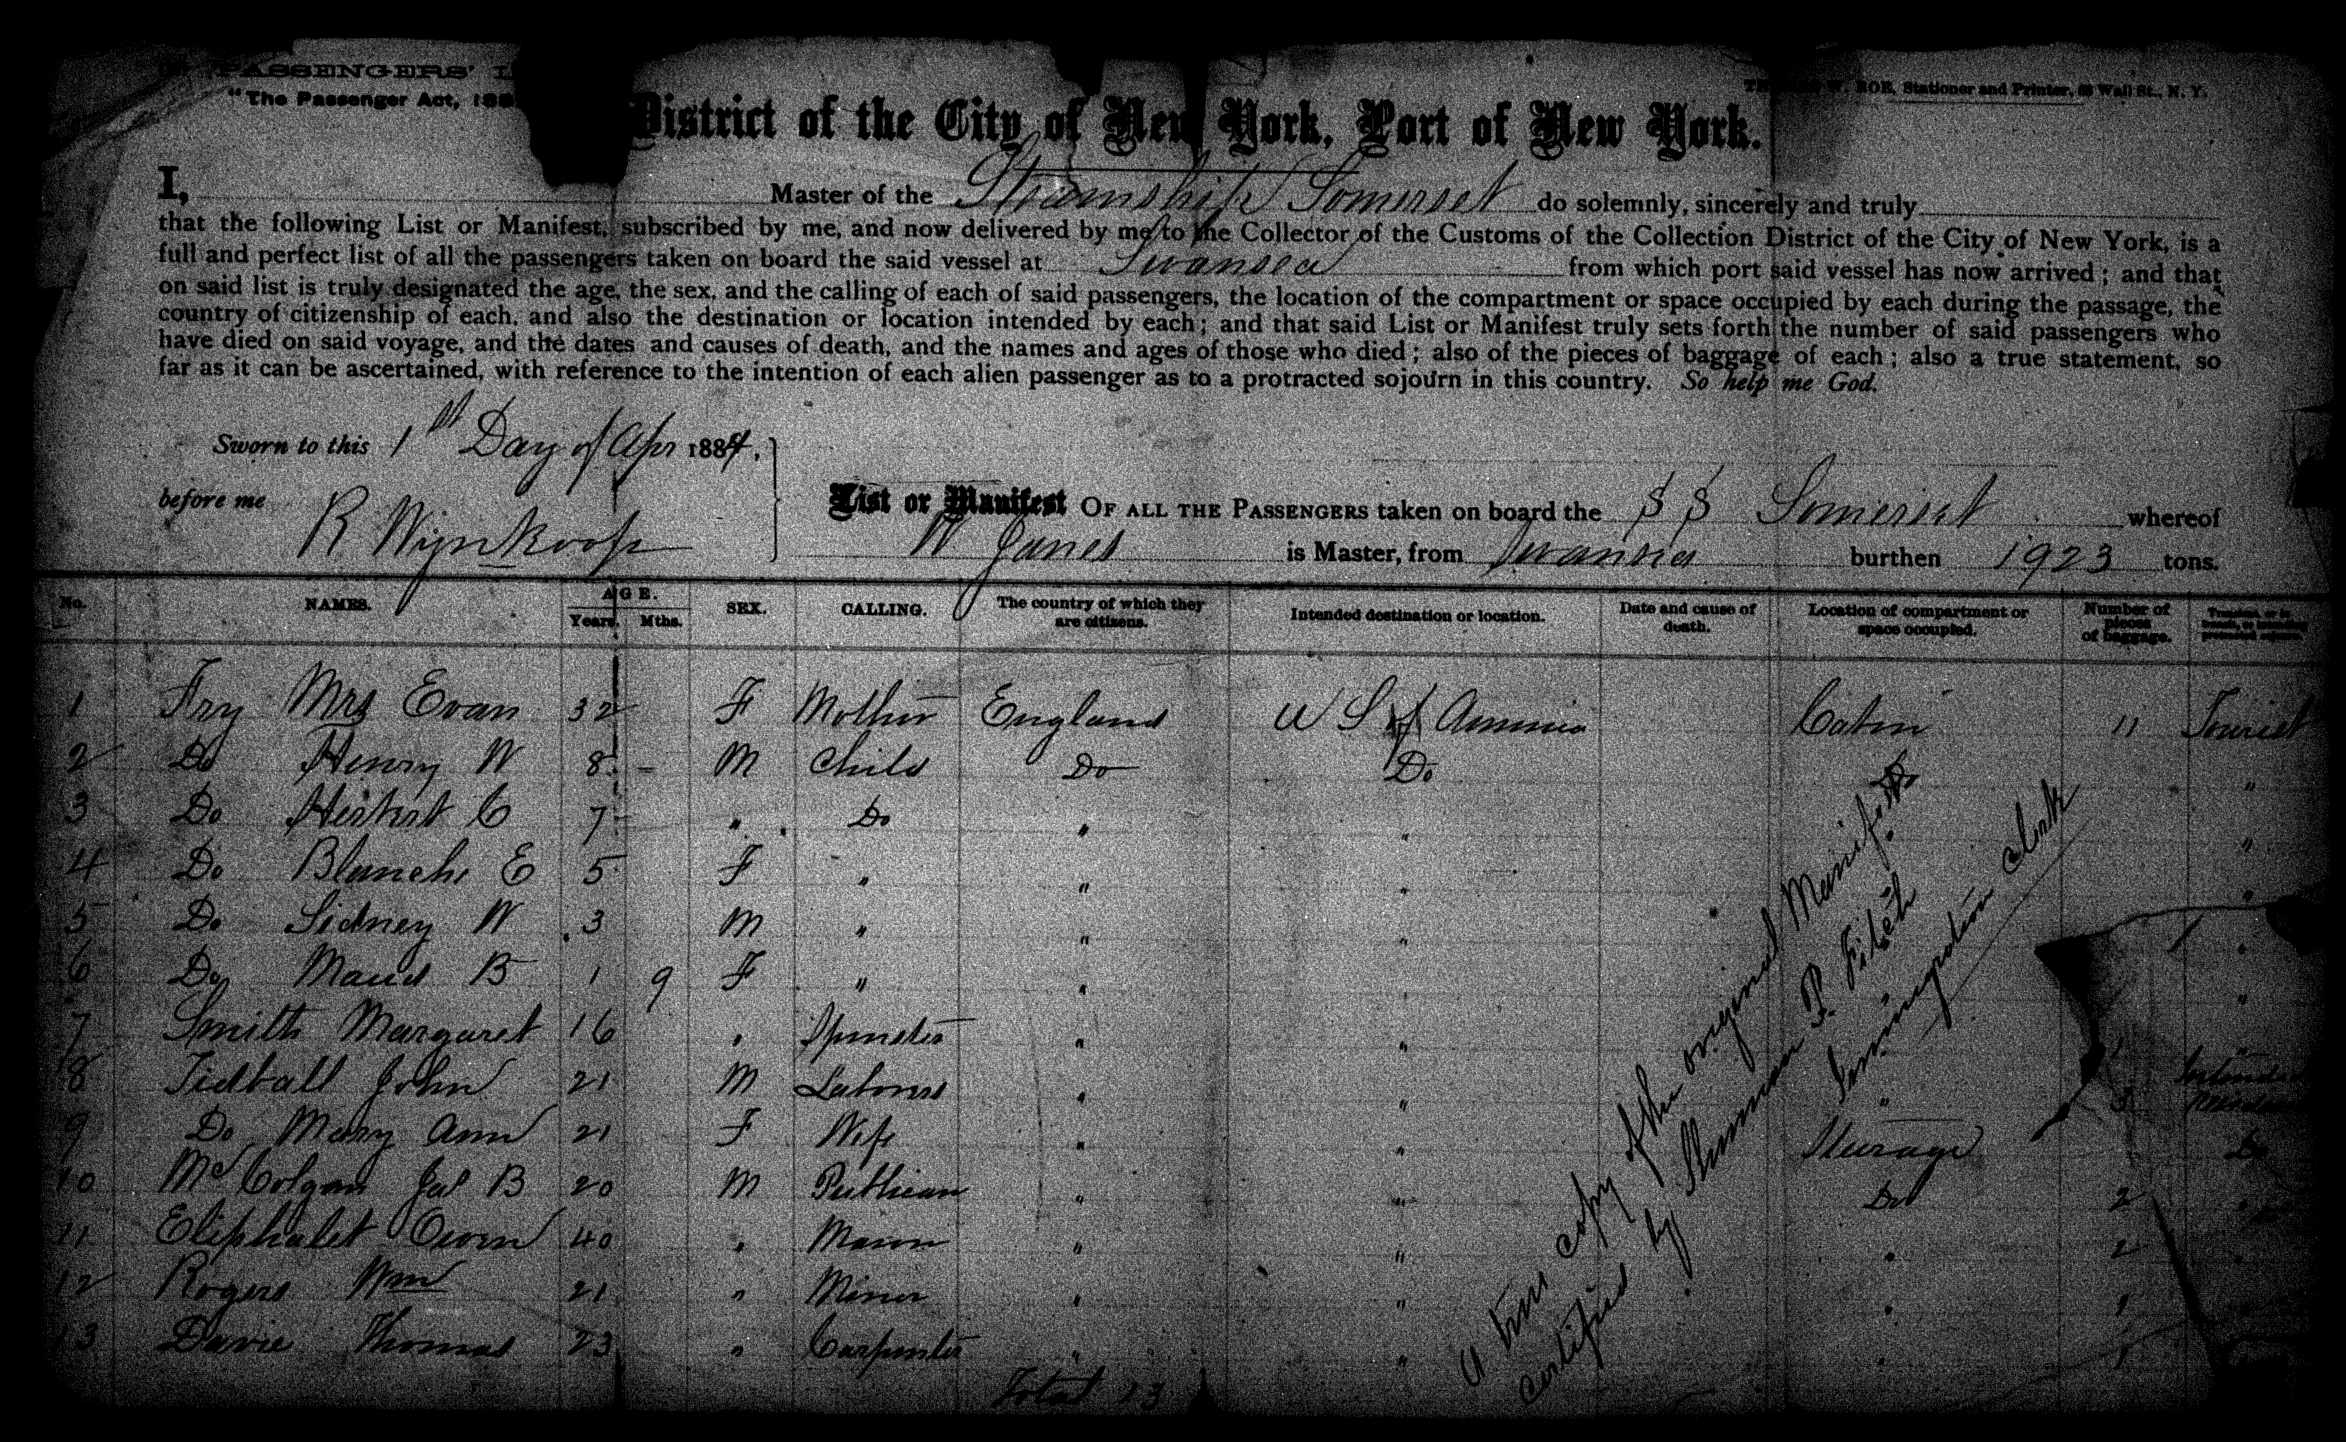 PASSENGERS'
"The Passenger Act, 188
W. ROE, Stationer and Printer, Wall St., N. Y.
District of the City of New York, Port of New York.
I, Master of the Steamship Somerset do solemnly, sincerely and truly
that the following List or Manifest, subscribed by me, and now delivered by me to the Collector of the Customs of the Collection District of the City of New York, is a
full and perfect list of all the passengers taken on board the said vessel at Swansea from which port said vessel has now arrived; and that
on said list is truly designated the age, the sex, and the calling of each of said passengers, the location of the compartment or space occupied by each during the passage, the
country of citizenship of each, and also the destination or location intended by each; and that said List or Manifest truly sets forth the number of said passengers who
have died on said voyage, and the dates and causes of death, and the names and ages of those who died; also of the pieces of baggage of each; also a true statement, so
far as it can be ascertained, with reference to the intention of each alien passenger as to a protracted sojourn in this country. So help me God.
Sworn to this 1st Day of Apr 1884,
before me R Wynkoop
List or Manifest OF ALL THE PASSENGERS taken on board the S S Somerset whereof
W Jones is Master, from Swansea burthen 1923 tons.
No. NAMES. AGE. Years. Mths. SEX. CALLING. The country of which they are citizens. Intended destination or location. Date and cause of death. Location of compartment or space occupied. Number of pieces of baggage.
1 Fry Mrs Evan 32 F Mother England U S of America Cabin 11 Tourist
2 Do Henry W 8 - M Child Do Do Do "
3 Do Herbert C 7 - " Do " " " "
4 Do Blanche E 5 F " " " "
5 Do Sidney W 3 M " " " "
6 Do Maud B 1 9 F " " " " "
7 Smith Margaret 16 " Spinster " " "
8 Tidball John 21 M Labourer " " "
9 Do Mary Ann 21 F Wife " " Steerage Do
10 McColgan Jas B 20 M Publican " " Do 2 "
11 Eliphalet Owen 40 " Mason " " " 2 "
12 Rogers Wm 21 " Miner " " " 1
13 Davie Thomas 23 " Carpenter " " " 1
Total 13
A true copy of the original Manifest
certified by Sherman P. Fitch
Immigration Clerk